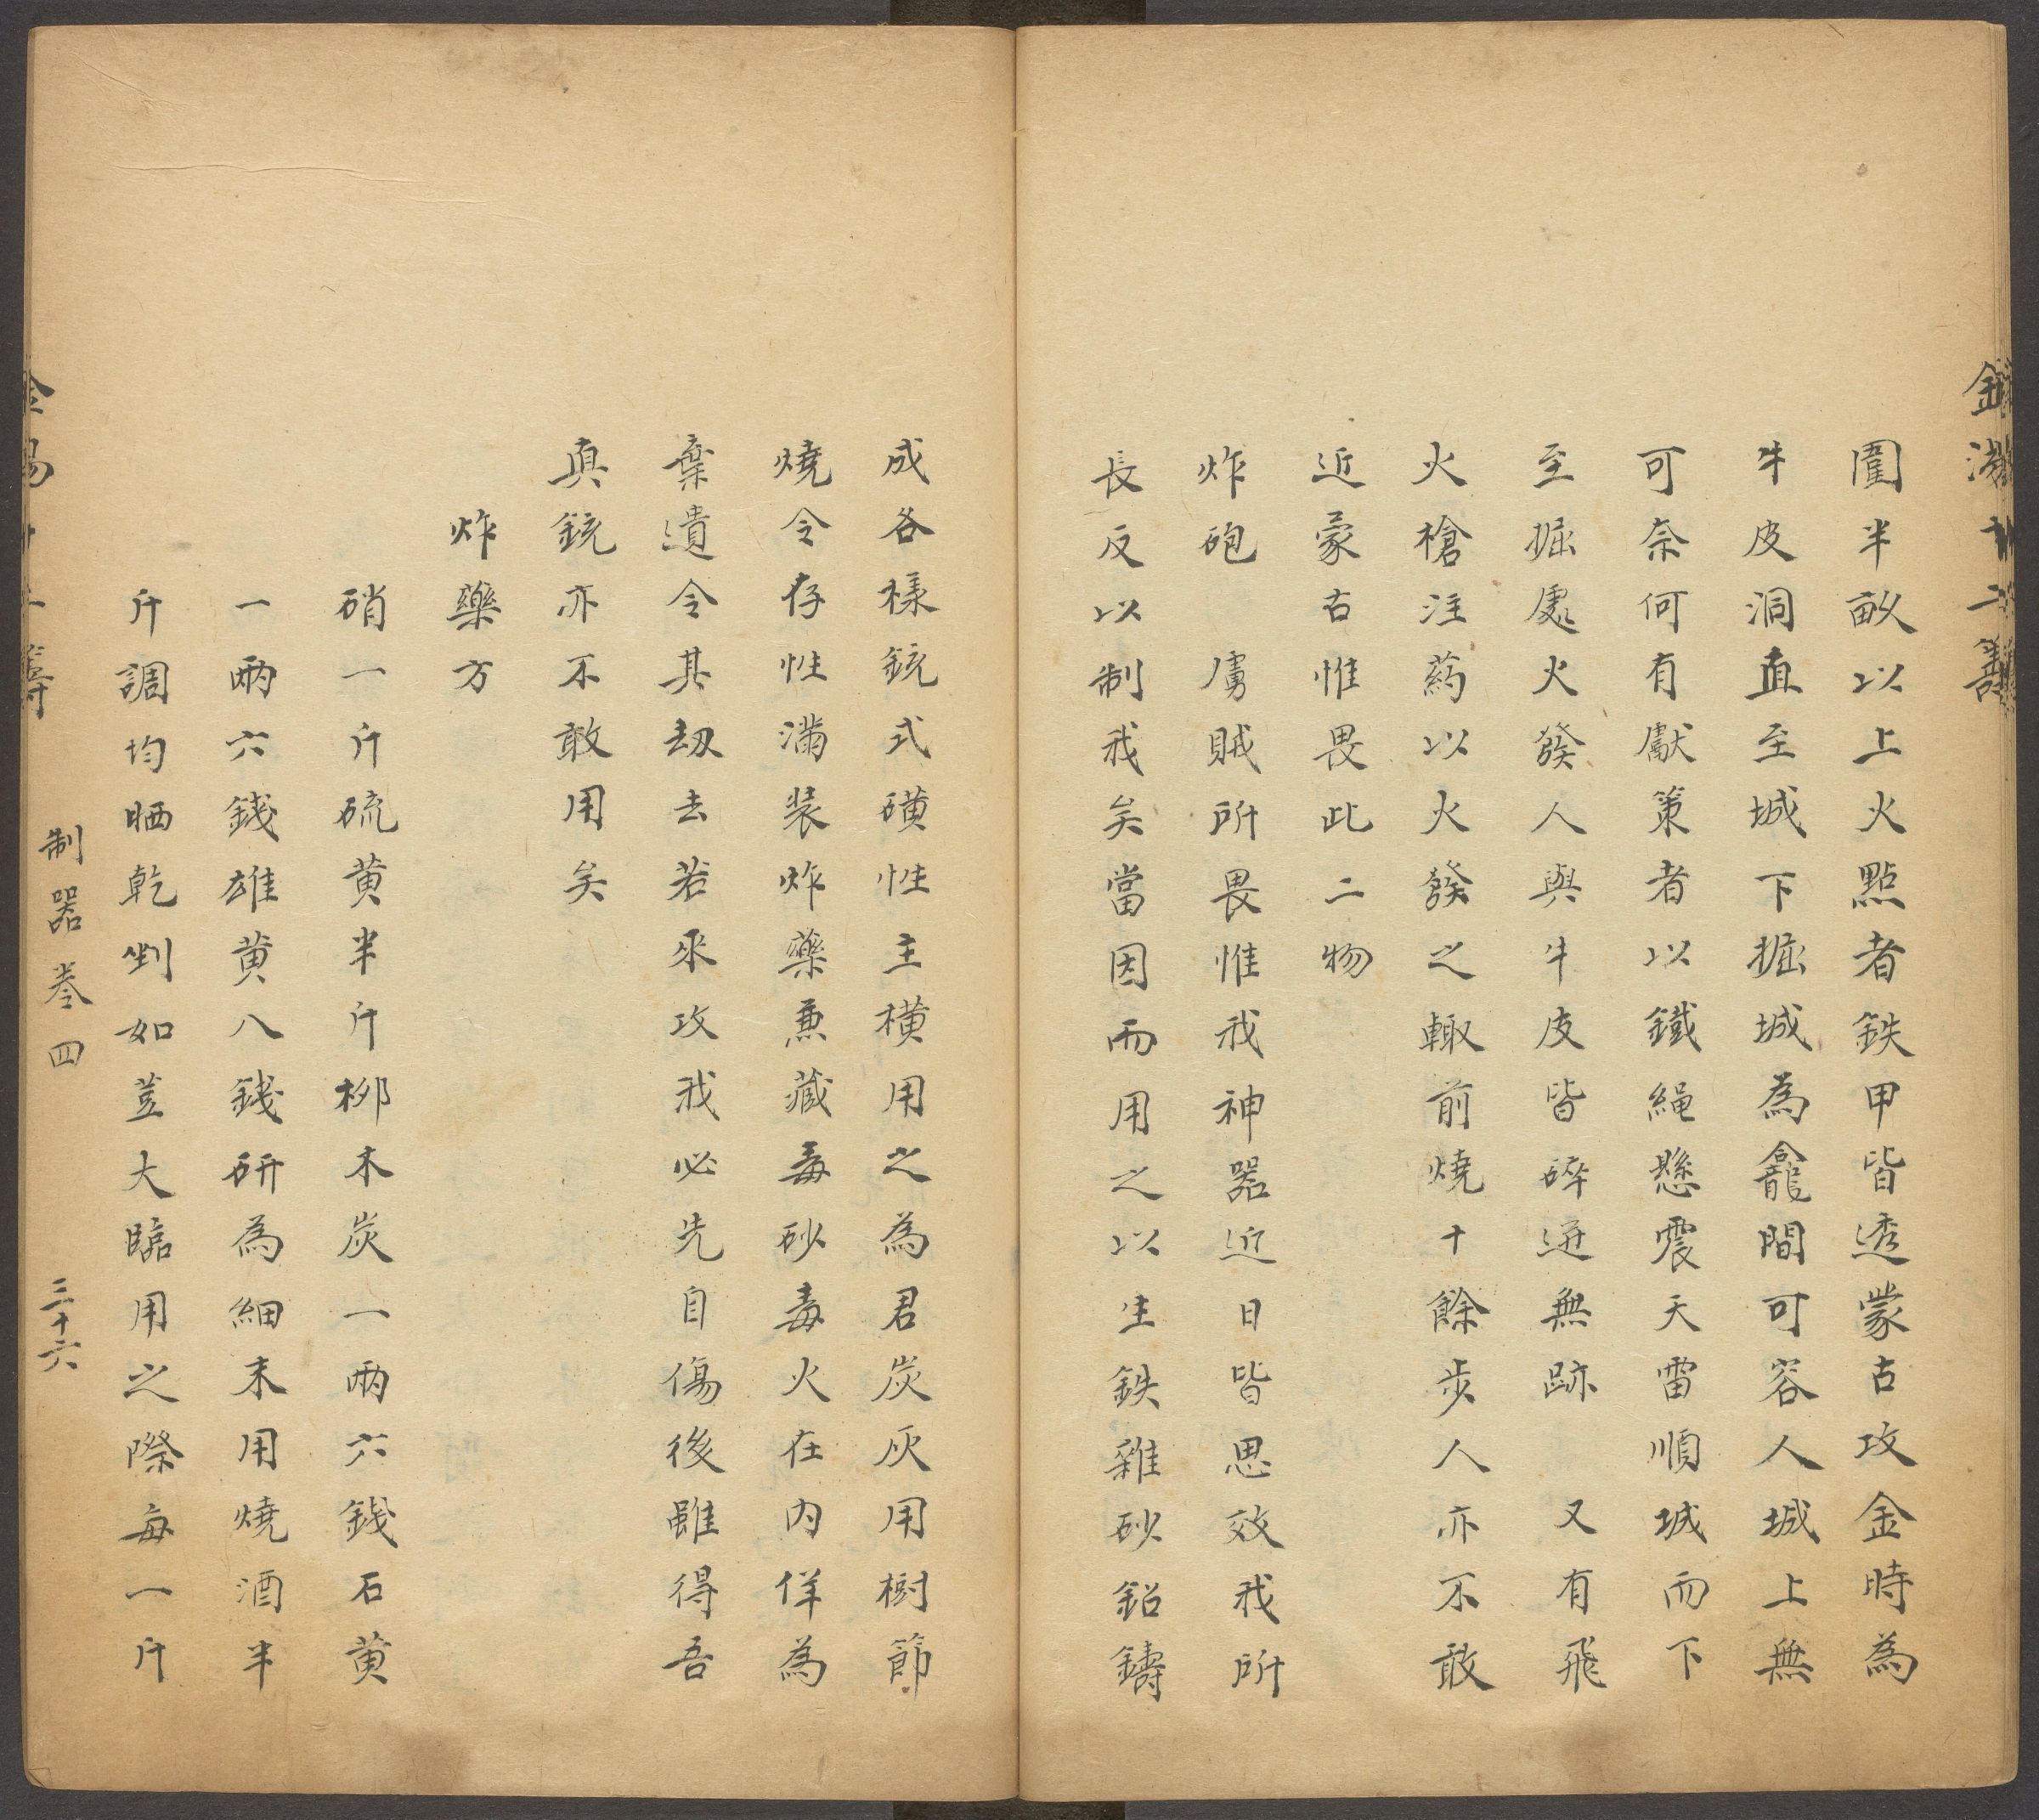 金湯十二籌
圍半畝以上火點者鉄甲皆透蒙古攻金時為
牛皮洞直至城下掘城為龕間可容人城上無
可奈何有獻策者以鐵繩懸震天雷順城而下
至掘處火發人與牛皮皆碎迸無跡　又有飛
火槍注葯以火發之輙前燒十餘步人亦不敢
近蒙古惟畏此二物
炸砲　虜賊所畏惟我神器近日皆思效我所
長反以制我矣當因而用之以生鉄雜砂鉛鑄
成各樣銃式磺性主橫用之為君炭灰用樹節
燒令存性滿裝炸藥兼藏毒砂毒火在內佯為
棄遺令其刼去若來攻我必先自傷後雖得吾
真銃亦不敢用矣
炸藥方
硝一斤硫黄半斤柳木炭一兩六錢石黄
一兩六錢雄黄八錢研為細末用燒酒半
斤調均晒乾剉如荳大臨用之際每一斤
金湯十二籌
制器卷四
三十六